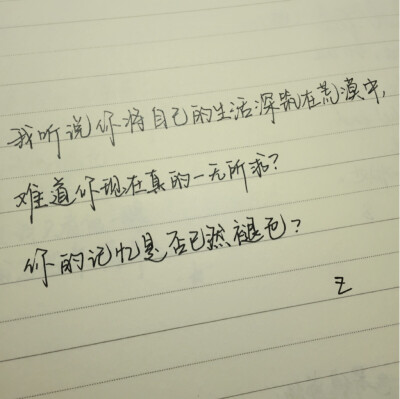 我听说你将自己的生活深筑在荒漠中,
难道你现在真的一无所求?
你的记忆是否已然褪色?
Z